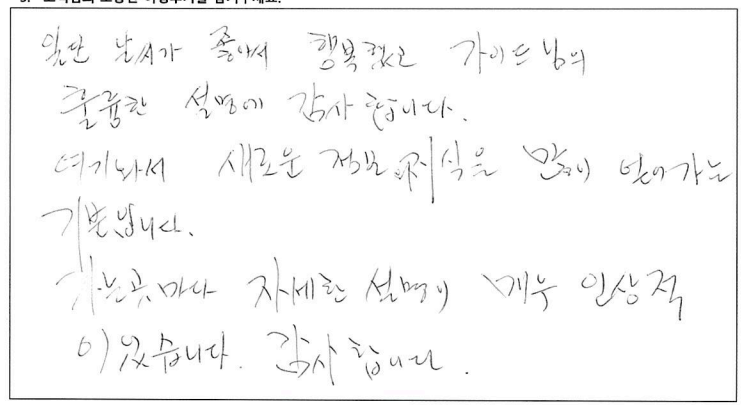 일단 날씨가 좋아서 행복했고 가이드님의
훌륭한 설명에 감사합니다.
여기와서 새로운 정보 지식을 많이 얻어가는
기분입니다.
가는곳마다 자세한 설명이 매우 인상적
이었습니다. 감사합니다.